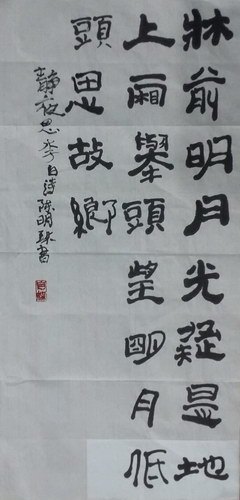 牀前明月光疑是地
上廂舉頭望明月低
頭思故鄉
靜夜思李白詩陳明書